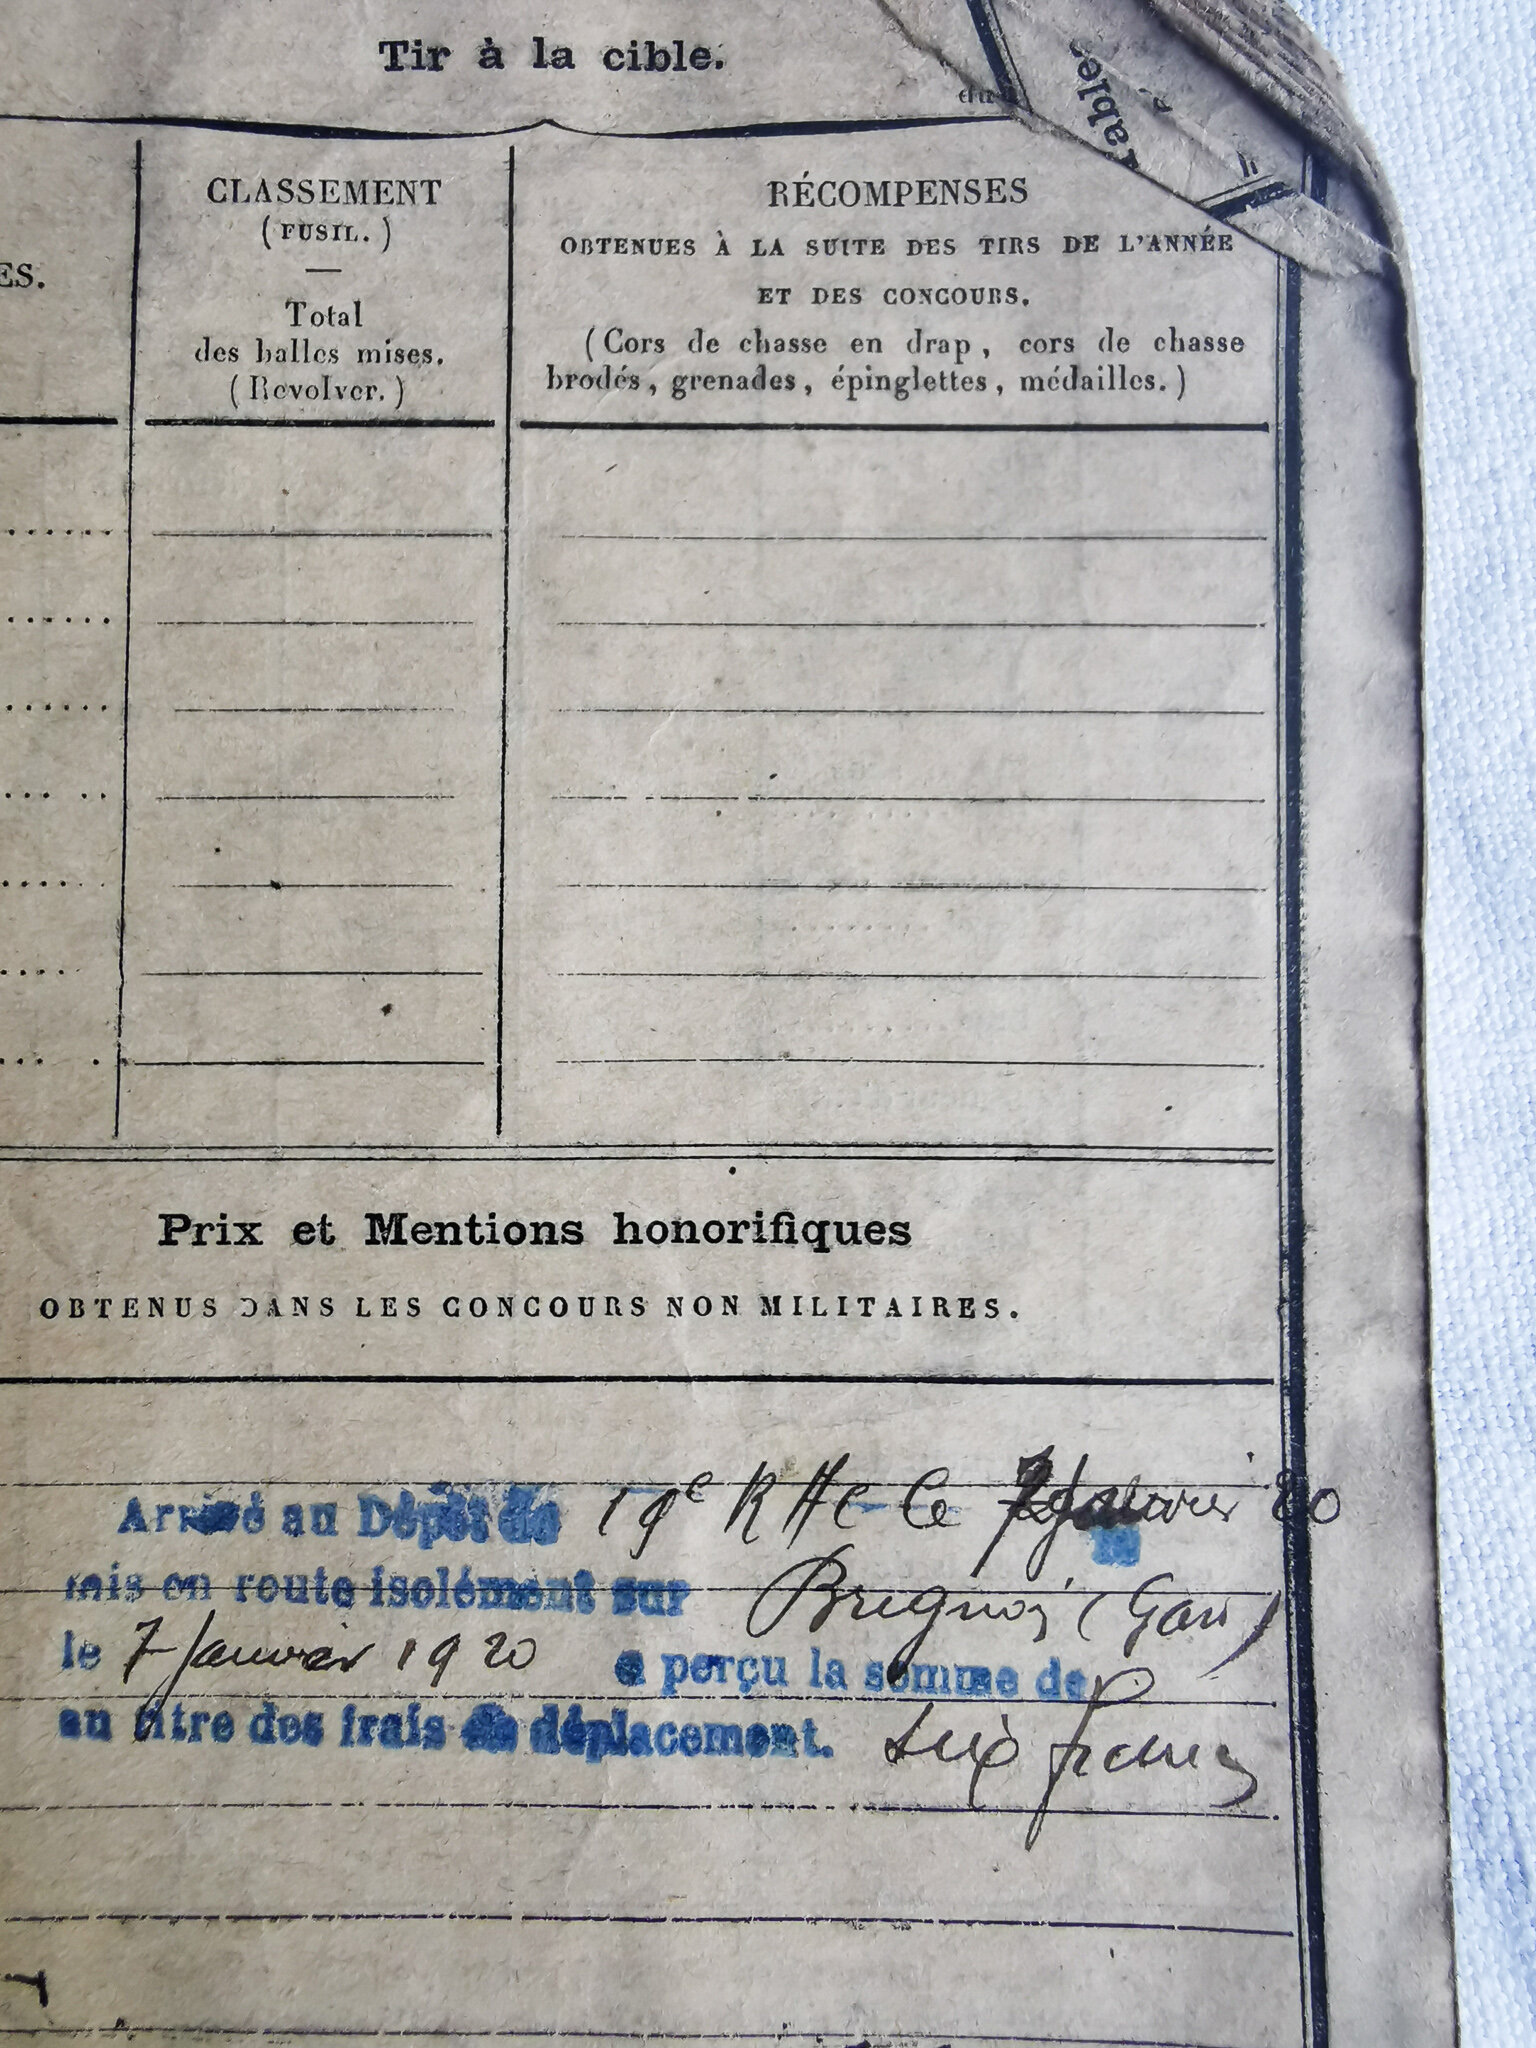 Tir à la cible.
du
Tables
ES.
CLASSEMENT
(FUSIL.)
Total
des balles mises.
(Revolver.)
RÉCOMPENSES
OBTENUES À LA SUITE DES TIRS DE L'ANNÉE
ET DES CONCOURS.
(Cors de chasse en drap, cors de chasse
brodés, grenades, épinglettes, médailles.)
Prix et Mentions honorifiques
OBTENUS DANS LES CONCOURS NON MILITAIRES.
Arrivé au Dépôt de 19e le 7 Janvier 20
mis en route isolément sur (Gard)
le 7 Janvier 1920 a perçu la somme de
au titre des frais de déplacement. francs